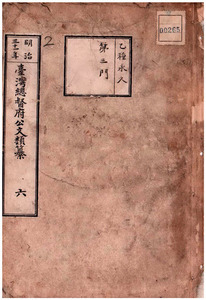 00265
乙種永久
第三門
2
明治
三十一年
臺灣總督府公文類纂
六